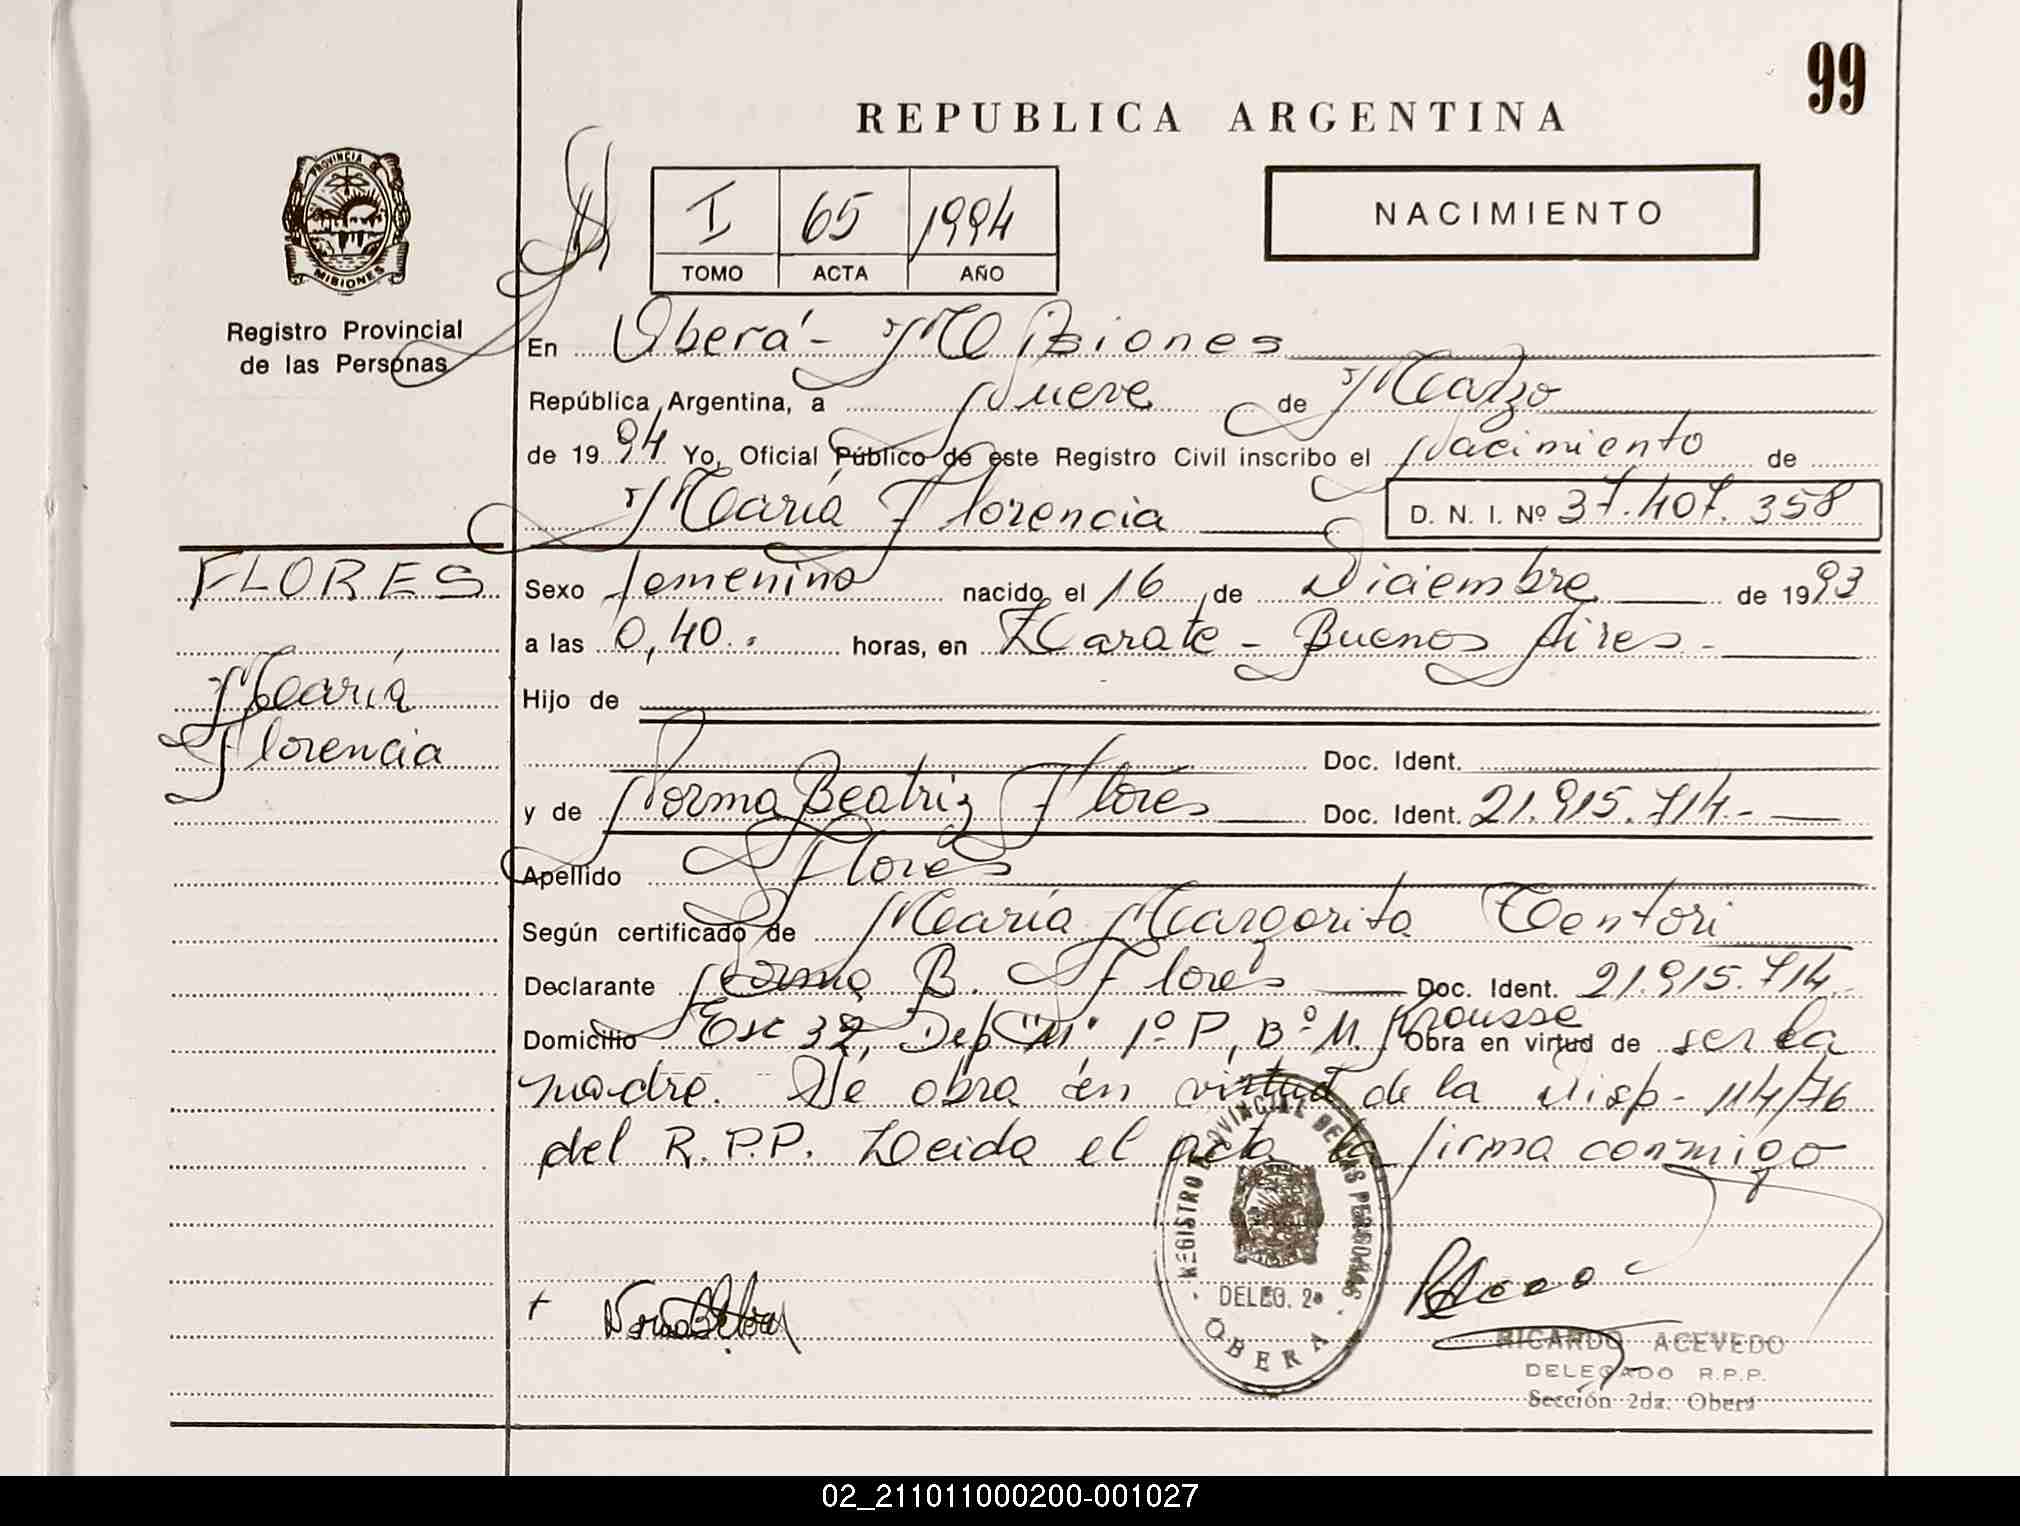 99
REPUBLICA ARGENTINA
PROVINCIA DE
MISIONES
Registro Provincial
de las Personas
I 65 1994
TOMO ACTA AÑO
NACIMIENTO
En Oberá - Misiones
República Argentina, a Nueve de Marzo
de 1994 Yo, Oficial Público de este Registro Civil inscribo el Nacimiento de
María Florencia D. N. I. Nº 37.407.358
FLORES
María
Florencia
Sexo femenino nacido el 16 de Diciembre de 1993
a las 0,40.. horas, en Zarate - Buenos Aires -
Hijo de
Doc. Ident.
y de Norma Beatriz Flores Doc. Ident. 21.915.714.-
Apellido Flores
Según certificado de María Margarita Tentori
Declarante Norma B. Flores Doc. Ident. 21.915.714.-
Domicilio Esc 32, Dep "M" 1º P, Bº M. Krausse Obra en virtud de ser la
madre. Se obra en virtud de la Disp - 114/76
del R.P.P. Leida el acta la firma conmigo
REGISTRO PROVINCIAL DE LAS PERSONAS
DELEG. 2ª
OBERA
RICARDO ACEVEDO
DELEGADO R.P.P.
Sección 2da. Oberá
02_211011000200-001027